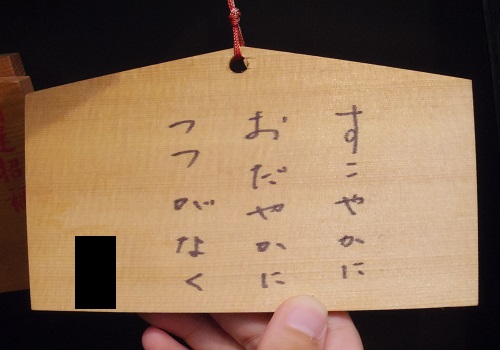 すこやかに
おだやかに
つつがなく